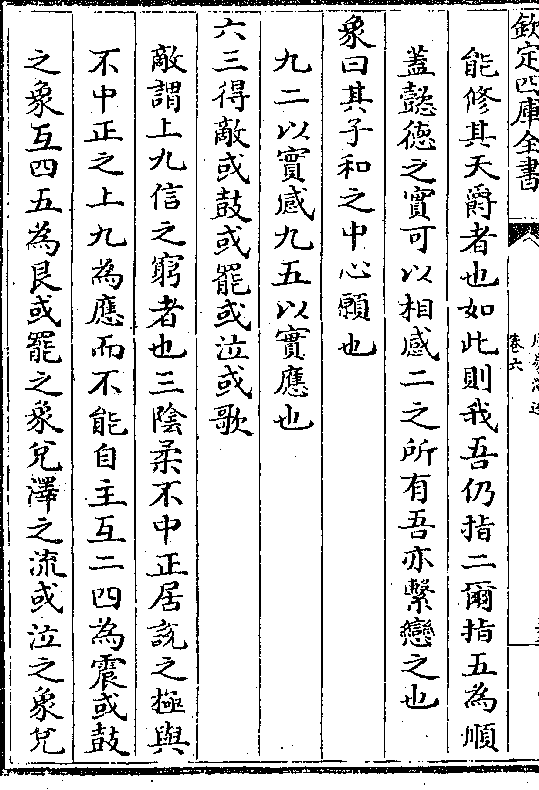 欽定四庫全書
卷六
能修其天爵者也如此則我吾仍指二爾指五為順
蓋懿徳之實可以相感二之所有吾亦繫戀之也
象曰其子和之中心願也
九二以實感九五以實應也
六三得敵或鼓或罷或泣或歌
敵謂上九信之窮者也三陰柔不中正居說之極與
不中正之上九為應而不能自主互二四為震或鼓
之象互四五為艮或罷之象兌澤之流或泣之象兌